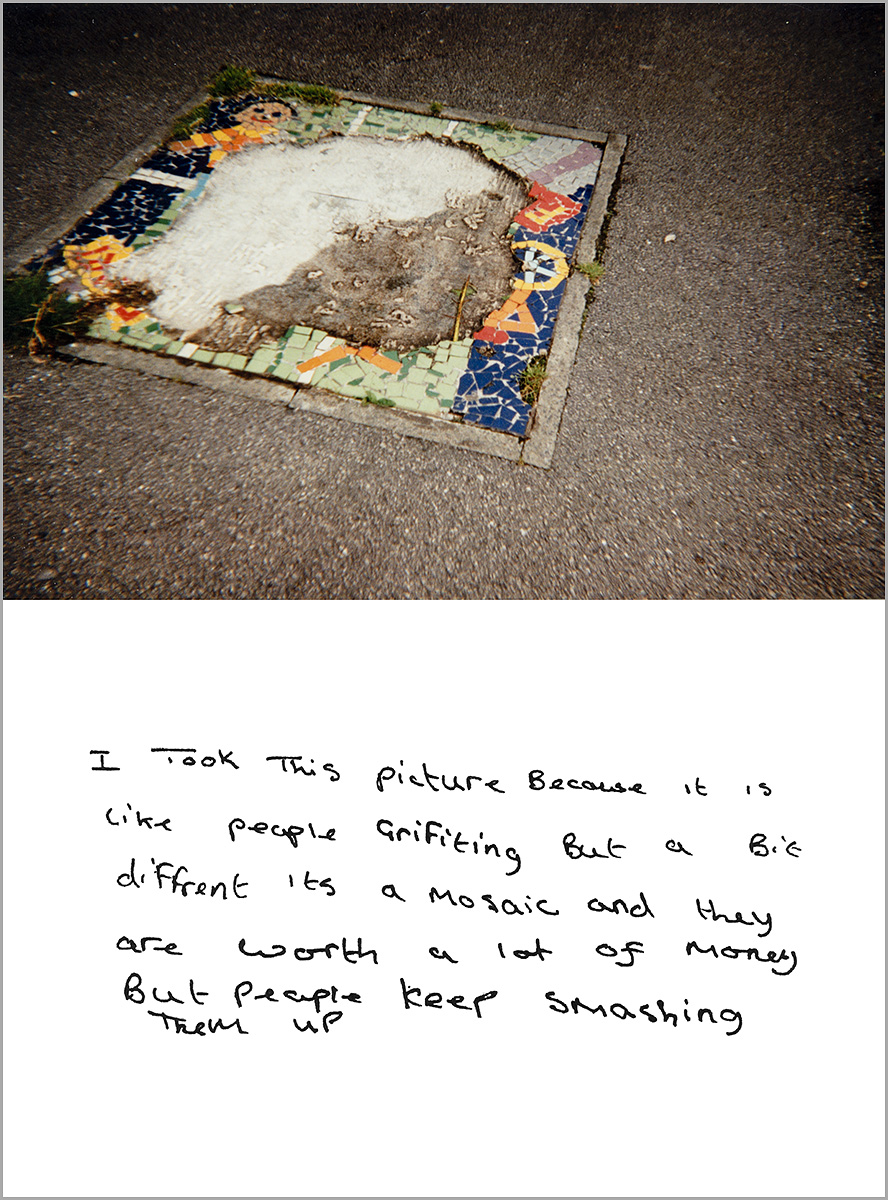 I Took This picture Because it is
Like people Grifiting But a Bit
diffrent its a Mosaic and they
are worth a lot of Money
But People keep Smashing
Them up